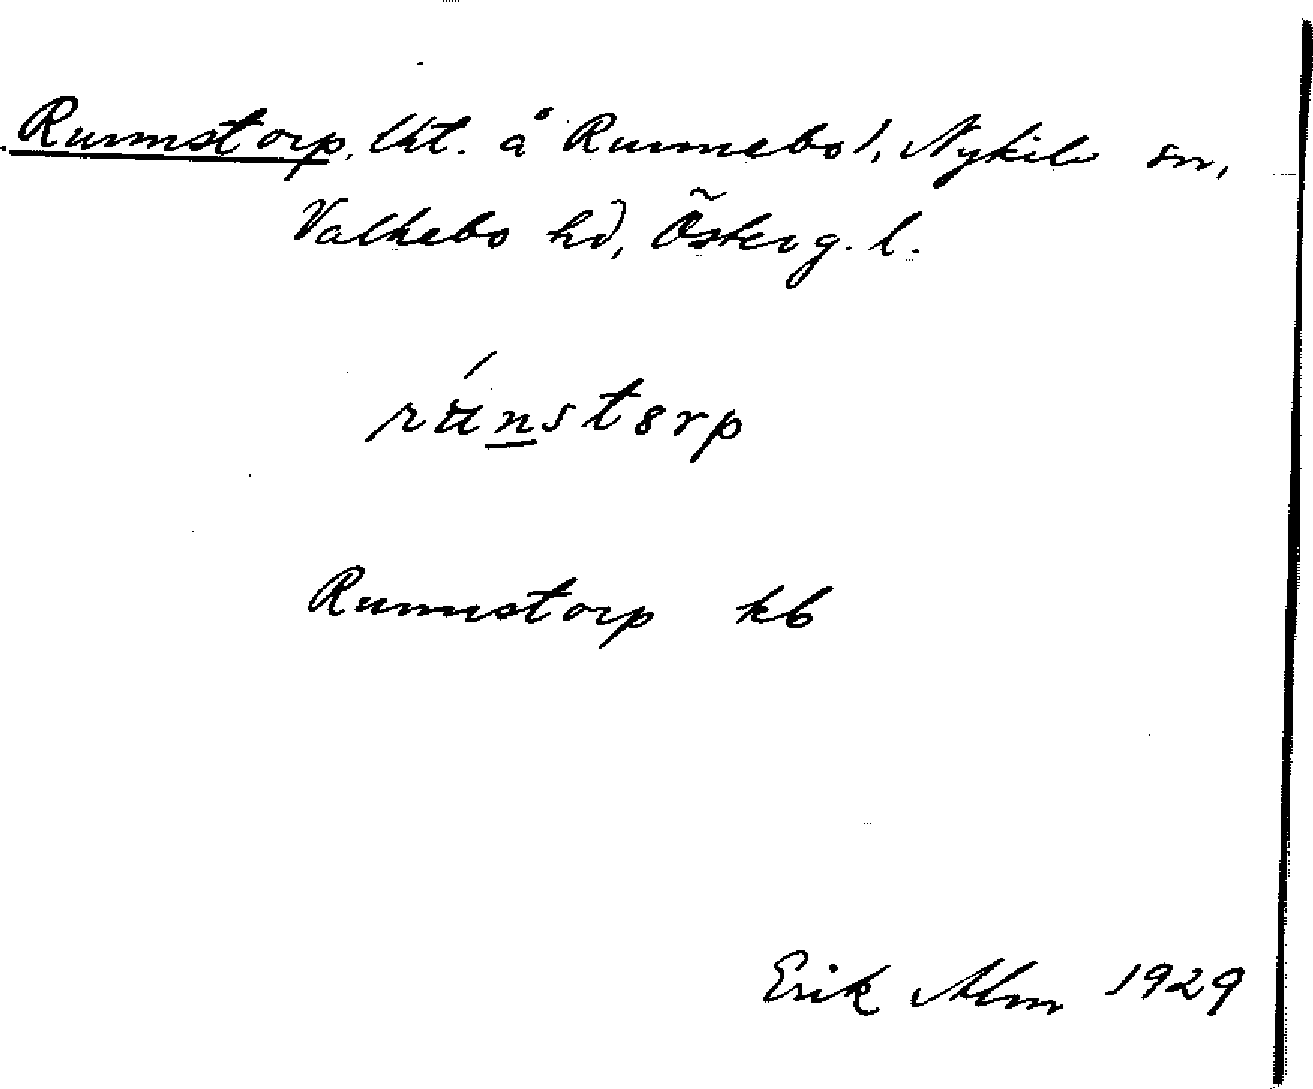 Runnstorp, lht. å Runnebo 1, Nykil sn,
Valkebo hd, Österg. l.
rúnstorp
Runnstorp kb
Erik Alm 1929